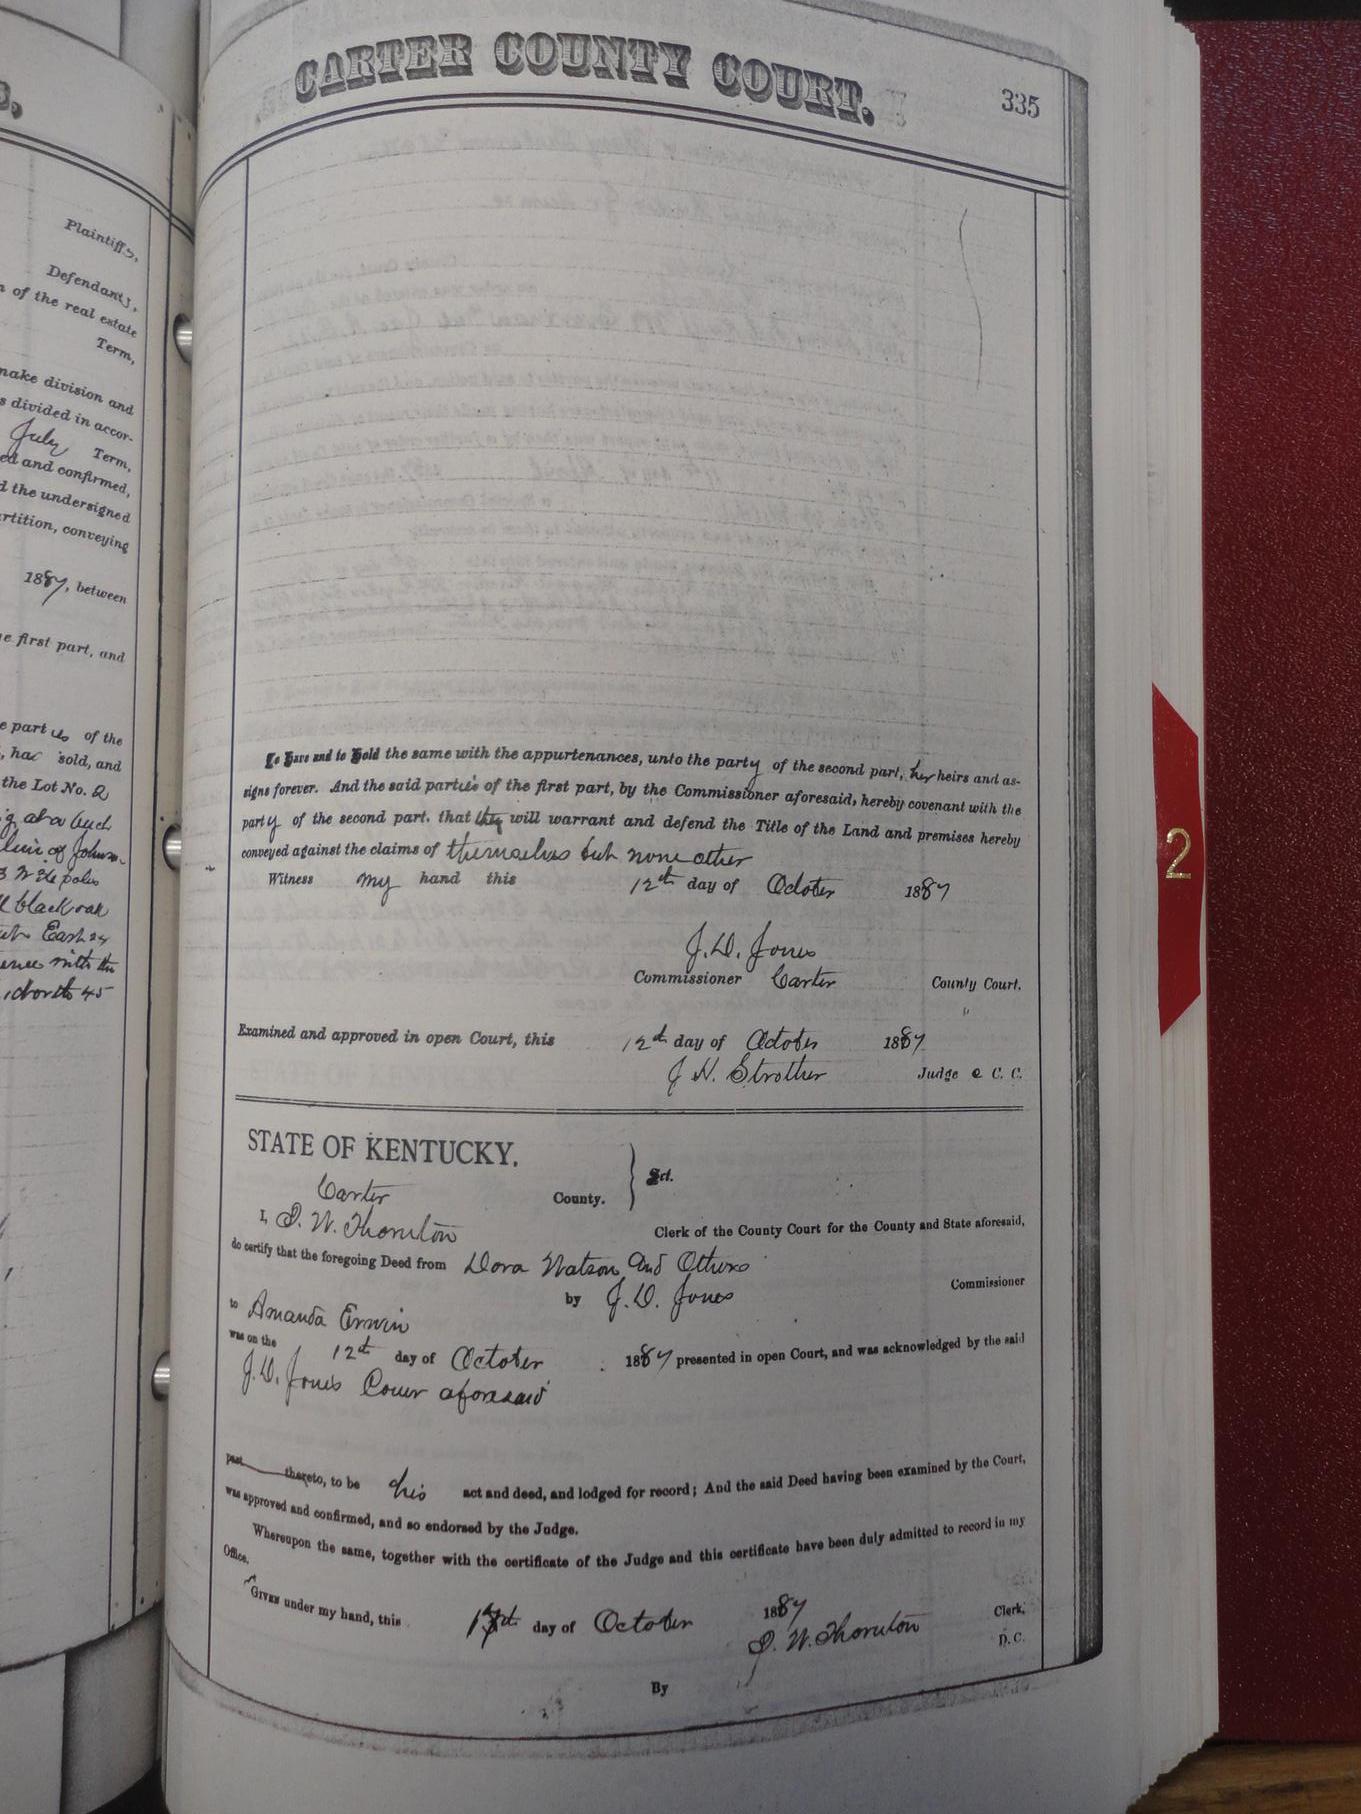 Plaintiffs,
Defendants,
n of the real estate
Term,
make division and
s divided in accor-
July Term,
ed and confirmed,
d the undersigned
rtition, conveying
1887, between
e first part, and
e parties of the
, has sold, and
the Lot No. 2
black oak
East 24
with the
North 45
CARTER COUNTY COURT. 335
To Have and to Hold the same with the appurtenances, unto the party of the second part, her heirs and as-
signs forever. And the said parties of the first part, by the Commissioner aforesaid, hereby covenant with the
party of the second part, that they will warrant and defend the Title of the Land and premises hereby
conveyed against the claims of themselves but none other
Witness my hand this 12th day of October 1887
J. D. Jones
Commissioner Carter County Court.
Examined and approved in open Court, this 12th day of October 1887
J. N. Strother Judge C. C. C.
STATE OF KENTUCKY,
Carter County. } Sct.
I, I. W. Thornton Clerk of the County Court for the County and State aforesaid,
do certify that the foregoing Deed from Dora Watson and Others
by J. D. Jones Commissioner
to Amanda Erwin
was on the 12th day of October 1887 presented in open Court, and was acknowledged by the said
J. D. Jones Comr aforesaid
part thereto, to be his act and deed, and lodged for record; And the said Deed having been examined by the Court,
was approved and confirmed, and so endorsed by the Judge.
Whereupon the same, together with the certificate of the Judge and this certificate have been duly admitted to record in my
Office.
Given under my hand, this day of October 1887
I. W. Thornton Clerk.
By D. C.
2